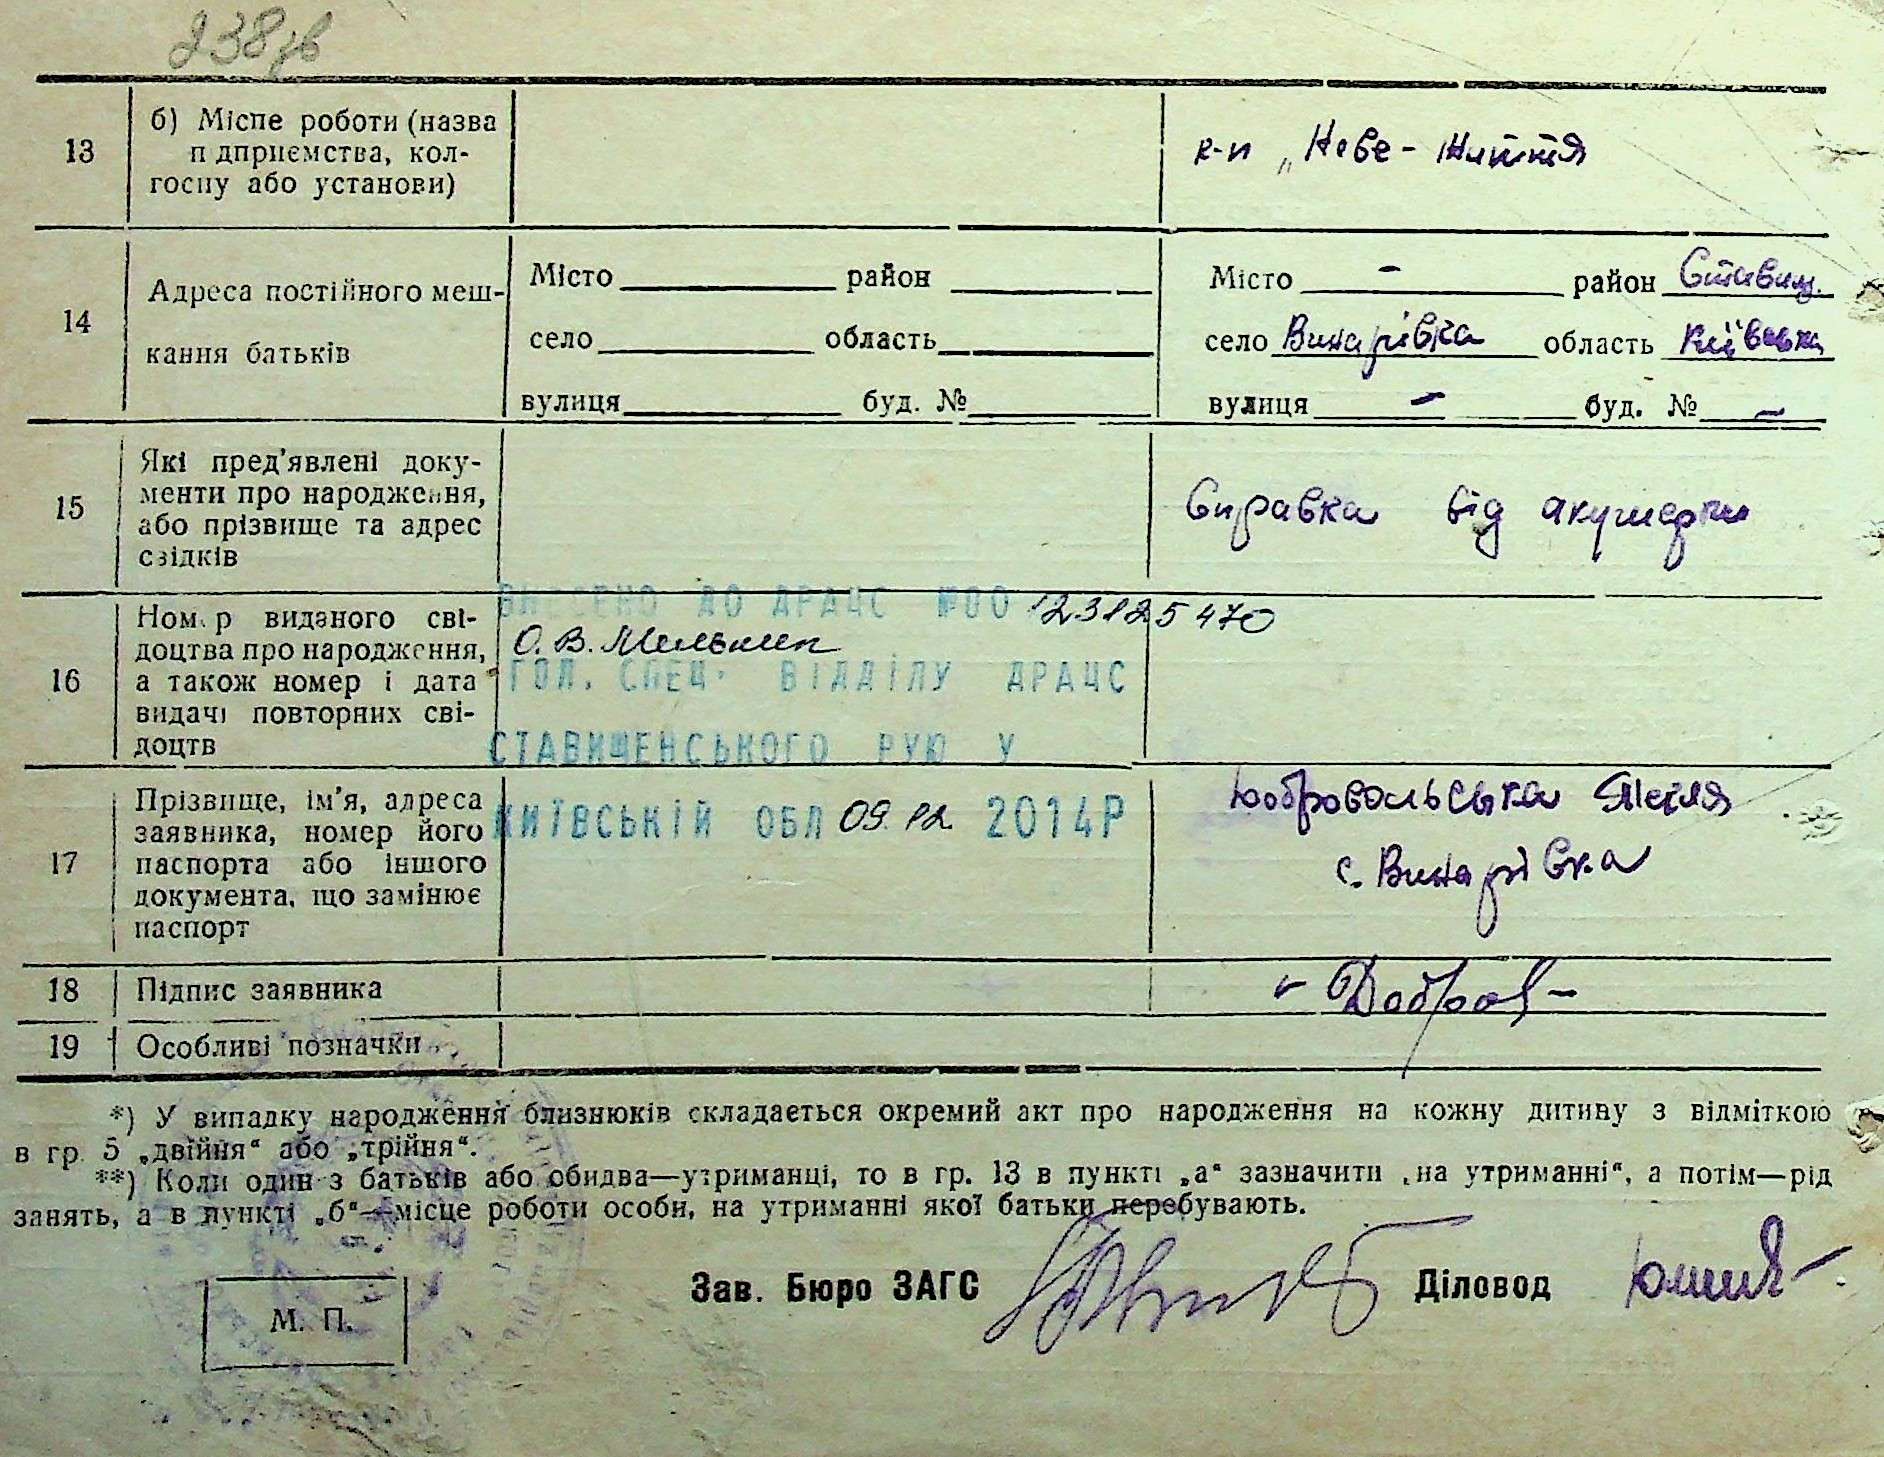 238 зв
13
б) Місце роботи (назва
п дприємства, кол-
госпу або установи)
к-п „Нове-життя
14
Адреса постійного меш-
кання батьків
Місто район
село область
вулиця буд. №
Місто - район Ставищ.
село Винарівка область Київська
вулиця - буд. № -
15
Які пред’явлені доку-
менти про народження,
або прізвище та адрес
свідків
Справка від акушерки
16
Номер виданого сві-
доцтва про народження,
а також номер і дата
видачі повторних сві-
доцтв
ВНЕСЕНО ДО ДРАЦС №00 123125470
О. В. Мельник
ГОЛ. СПЕЦ. ВІДДІЛУ ДРАЦС
СТАВИЩЕНСЬКОГО РУЮ У
КИЇВСЬКІЙ ОБЛ 09.12 2014Р
17
Прізвище, ім’я, адреса
заявника, номер його
паспорта або іншого
документа, що замінює
паспорт
Добровольська
с. Винарівка
18
Підпис заявника
- Добров -
19
Особливі позначки
*) У випадку народження близнюків складається окремий акт про народження на кожну дитину з відміткою
в гр. 5 „двійня“ або „трійня“.
**) Коли один з батьків або обидва—утриманці, то в гр. 13 в пункті „а“ зазначити „на утриманні“, а потім—рід
занять, а в пункті „б“—місце роботи особи, на утриманні якої батьки перебувають.
М. П.
Зав. Бюро ЗАГС
Діловод